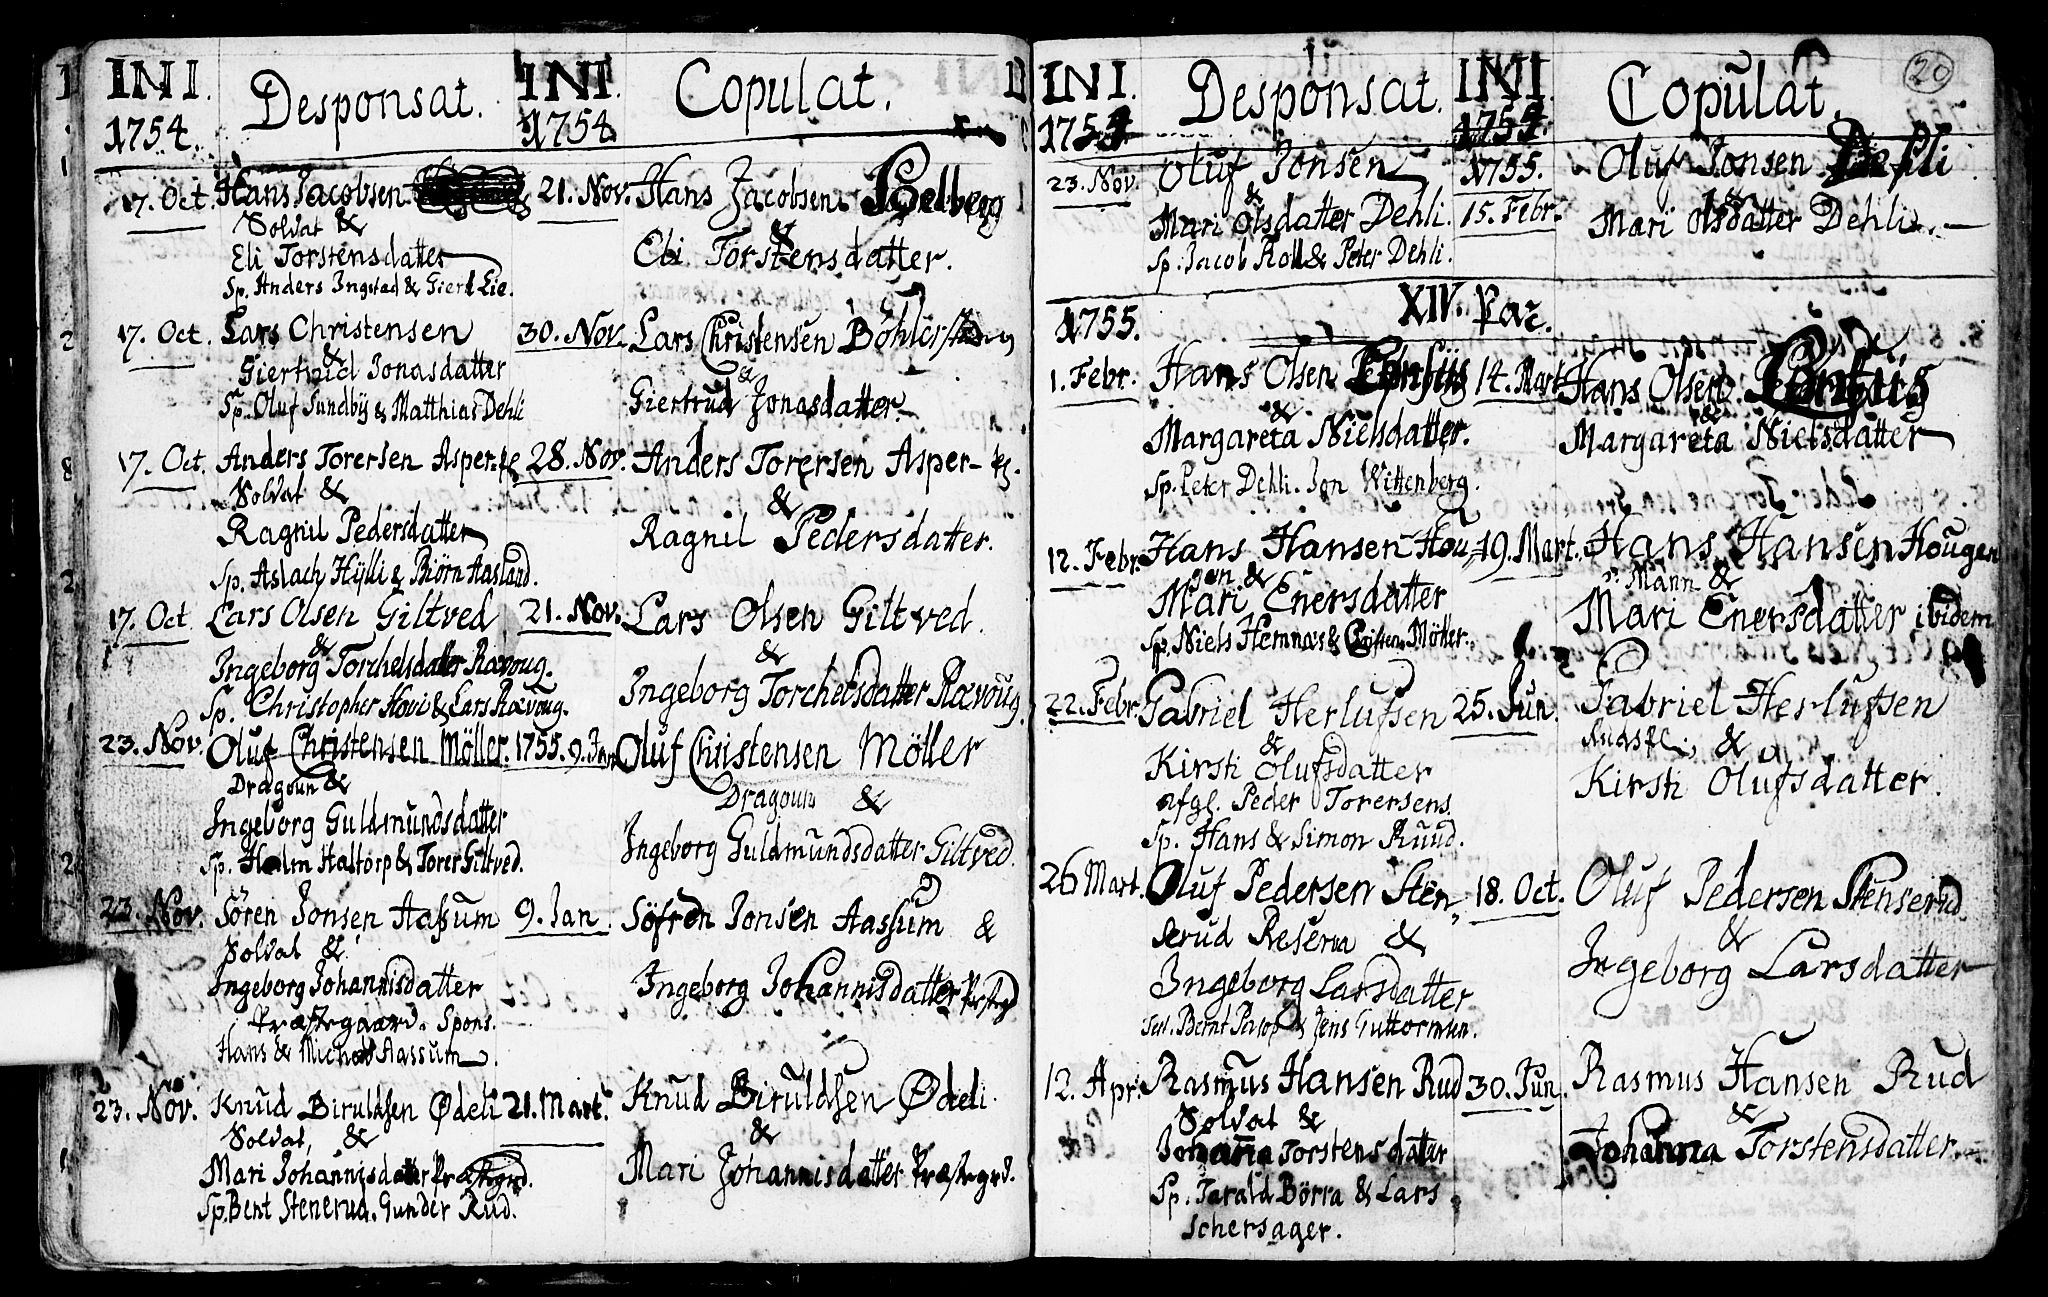 INI. Desponsat. INI. Copulat.
1754. 1754.
17. Oct. Hans Jacobsen
Soldat &
Eli Torstensdatter
Sp. Anders Ingstad & Giert Lie.
21. Nov. Hans Jacobsen Helberg
&
Eli Torstensdatter.
17. Oct. Lars Christensen
&
Giertrud Jonasdatter
Sp. Oluf Sundbÿ & Matthias Dehli
30. Nov. Lars Christensen
&
Giertrud Jonasdatter
17. Oct. Anders Torersen Asper-
Soldat &
Ragnil Pedersdatter
Sp. Aslach Hÿlli & Biörn Aasland.
28. Nov. Anders Torersen Asper-
&
Ragnil Pedersdatter.
17. Oct. Lars Olsen Giltved
&
Ingeborg Torchelsdatter Ravoug.
Sp. Christopher Hovi & Lars Ravoug.
21. Nov. Lars Olsen Giltved.
&
Ingeborg Torchelsdatter Ravoug.
23. Nov. Oluf Christensen Möller.
Dragoun &
Ingeborg Guldmundsdatter
Sp. Holm Haltorp & Torer Giltved.
1755. 9. Jan Oluf Christensen Möller
Dragoun &
Ingeborg Guldmundsdatter Giltved.
23. Nov. Sören Jonsen Aassum
Soldat &
Ingeborg Johannisdatter
Præstegaard. Spons.
Hans & Michel Aassum.
9. Jan. Söfren Jonsen Aassum &
Ingeborg Johannisdatter
23. Nov. Knud Biruldsen Ødeli
Soldat, &
Mari Johannisdatter Præstgrd.
Sp. Bent Stenerud. Gunder Rud.
21. Mart. Knud Biruldsen Ødeli.
&
Mari Johannisdatter Præstgrd.
20
INI. Desponsat. INI. Copulat.
1754 1754.
23. Nov. Oluf Jonsen
&
Mari Olsdatter Dehli.
Sp. Jacob Roll & Peter Dehli.
1755.
15. Febr. Oluf Jonsen Dehli
&
Mari Olsdatter Dehli.
XIV. Par.
1755.
1. Febr. Hans Olsen
&
Margareta Nielsdatter.
Sp. Peter Dehli. Jon Wittenberg.
14. Mart Hans Olsen
&
Margareta Nielsdatter
12. Febr. Hans Hansen Hou-
gen &
Mari Enersdatter
Sp. Niels Hemnæs & Christen Möller.
19. Mart. Hans Hansen Hougen
&
Mari Enersdatter ibidem
22. Febr. Gabriel Herlufsen
&
Kirsti Olufsdatter
afgl. Peder Torersens.
Sp. Hans & Simon Ruud.
25. Jun. Gabriel Herlufsen
&
Kirsti Olufsdatter.
26 Mart. Oluf Pedersen Sten-
serud Reserva &
Ingeborg Larsdatter
Bernt & Jens Guttormsen.
18. Oct. Oluf Pedersen Stenserud.
&
Ingeborg Larsdatter
12. Apr. Rasmus Hansen Rud
Soldat &
Johanna Torstensdatter
Sp. Tarald Börra & Lars
Schersager.
30. Jun. Rasmus Hansen Rud
&
Johanna Torstensdatter.